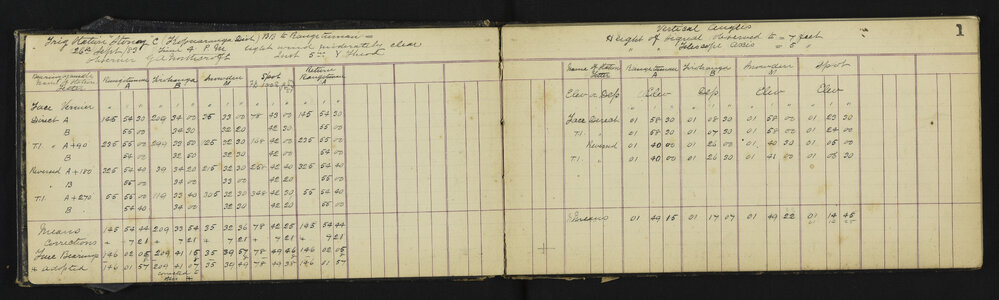 Trig Station Stoney C (Kopuaranga Dist) BB to Rangitumau =
26th Sept /82 Time 4 P.M. light wind moderately clear
Observer Inst 5 in
Bearings &
Name of Station Rangitumau Tirohanga Snowden Spout Return Rangitumau
Letter A B M A
Face Vernier ° ' " ° ' " ° ' " ° ' " ° ' "
Direct A 145 54 30 209 34 00 35 33 00 78 43 00 145 54 30
B 55 00 34 30 32 20 42 30 55 00
T.I. A+90 235 55 00 299 33 50 125 32 30 168 42 00 235 55 00
B 55 00 32 50 32 30 42 00 55 00
Reversed A+180 325 54 40 29 34 20 215 32 30 258 42 40 325 54 40
" B 55 00 34 00 33 00 42 20 55 00
T.I. A+270 55 55 00 119 33 40 305 32 30 348 42 20 55 54 40
B 54 40 34 00 32 30 42 20 55 00
Means 145 54 44 209 33 54 35 32 36 78 42 25 145 54 44
Corrections + 7 21 + 7 21 + 7 21 + 7 21 + 7 21
True Bearings 146 02 05 209 41 15 35 39 57 78 49 46 146 02 05
+ adopted 146 01 57 209 41 07 35 39 49 78 49 38 146 01 57
1
Vertical Angles
Height of Signal Observed to = 7 feet
" " Telescope Axis = 5 "
Name of Station Rangitumau Tirohanga Snowden Spout
Letter A B M
Elev or Dep Elev Dep Elev Elev
° ' " ° ' " ° ' " ° ' "
Face Direct 01 58 30 01 08 30 01 58 00 01 23 30
T.I. " 01 58 30 01 07 30 01 58 00 01 24 00
Reversed 01 40 00 01 26 00 01 40 30 01 05 00
T.I. " 01 40 00 01 26 30 01 41 00 01 05 30
Means 01 49 15 01 17 07 01 49 22 01 14 45